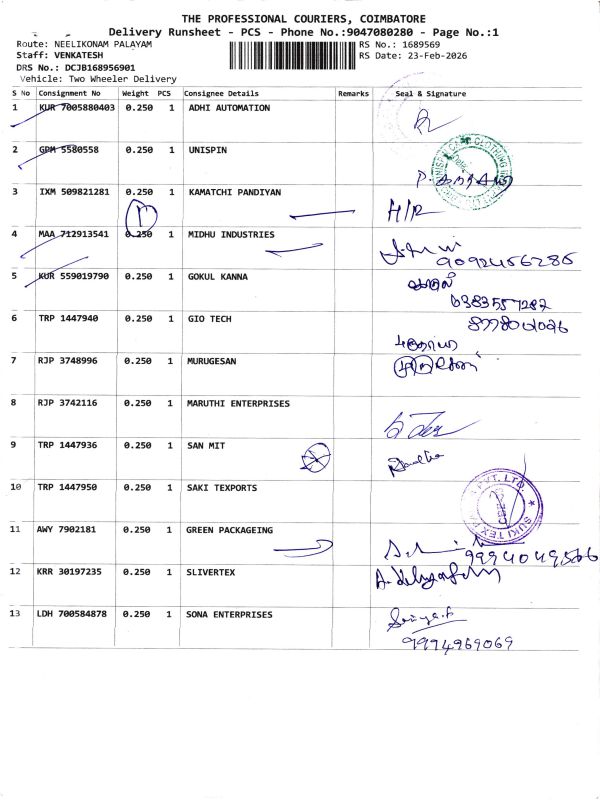 THE PROFESSIONAL COURIERS, COIMBATORE
Delivery Runsheet - PCS - Phone No.:9047080280 - Page No.:1
Route: NEELIKONAM PALAYAM
RS No.: 1689569
Staff: VENKATESH
RS Date: 23-Feb-2026
DRS No.: DCJB168956901
Vehicle: Two Wheeler Delivery
S No Consignment No Weight PCS Consignee Details Remarks Seal & Signature
1 KUR 7005880403 0.250 1 ADHI AUTOMATION
2 GPM 5580558 0.250 1 UNISPIN
3 IXM 509821281 0.250 1 KAMATCHI PANDIYAN H/R
4 MAA 712913541 0.250 1 MIDHU INDUSTRIES
9092456286
5 KUR 559019790 0.250 1 GOKUL KANNA
6383557287
6 TRP 1447940 0.250 1 GIO TECH
7 RJP 3748996 0.250 1 MURUGESAN
8 RJP 3742116 0.250 1 MARUTHI ENTERPRISES
9 TRP 1447936 0.250 1 SAN MIT
10 TRP 1447950 0.250 1 SAKI TEXPORTS
11 AWY 7902181 0.250 1 GREEN PACKAGEING
9994049566
12 KRR 30197235 0.250 1 SLIVERTEX
13 LDH 700584878 0.250 1 SONA ENTERPRISES
9994969069